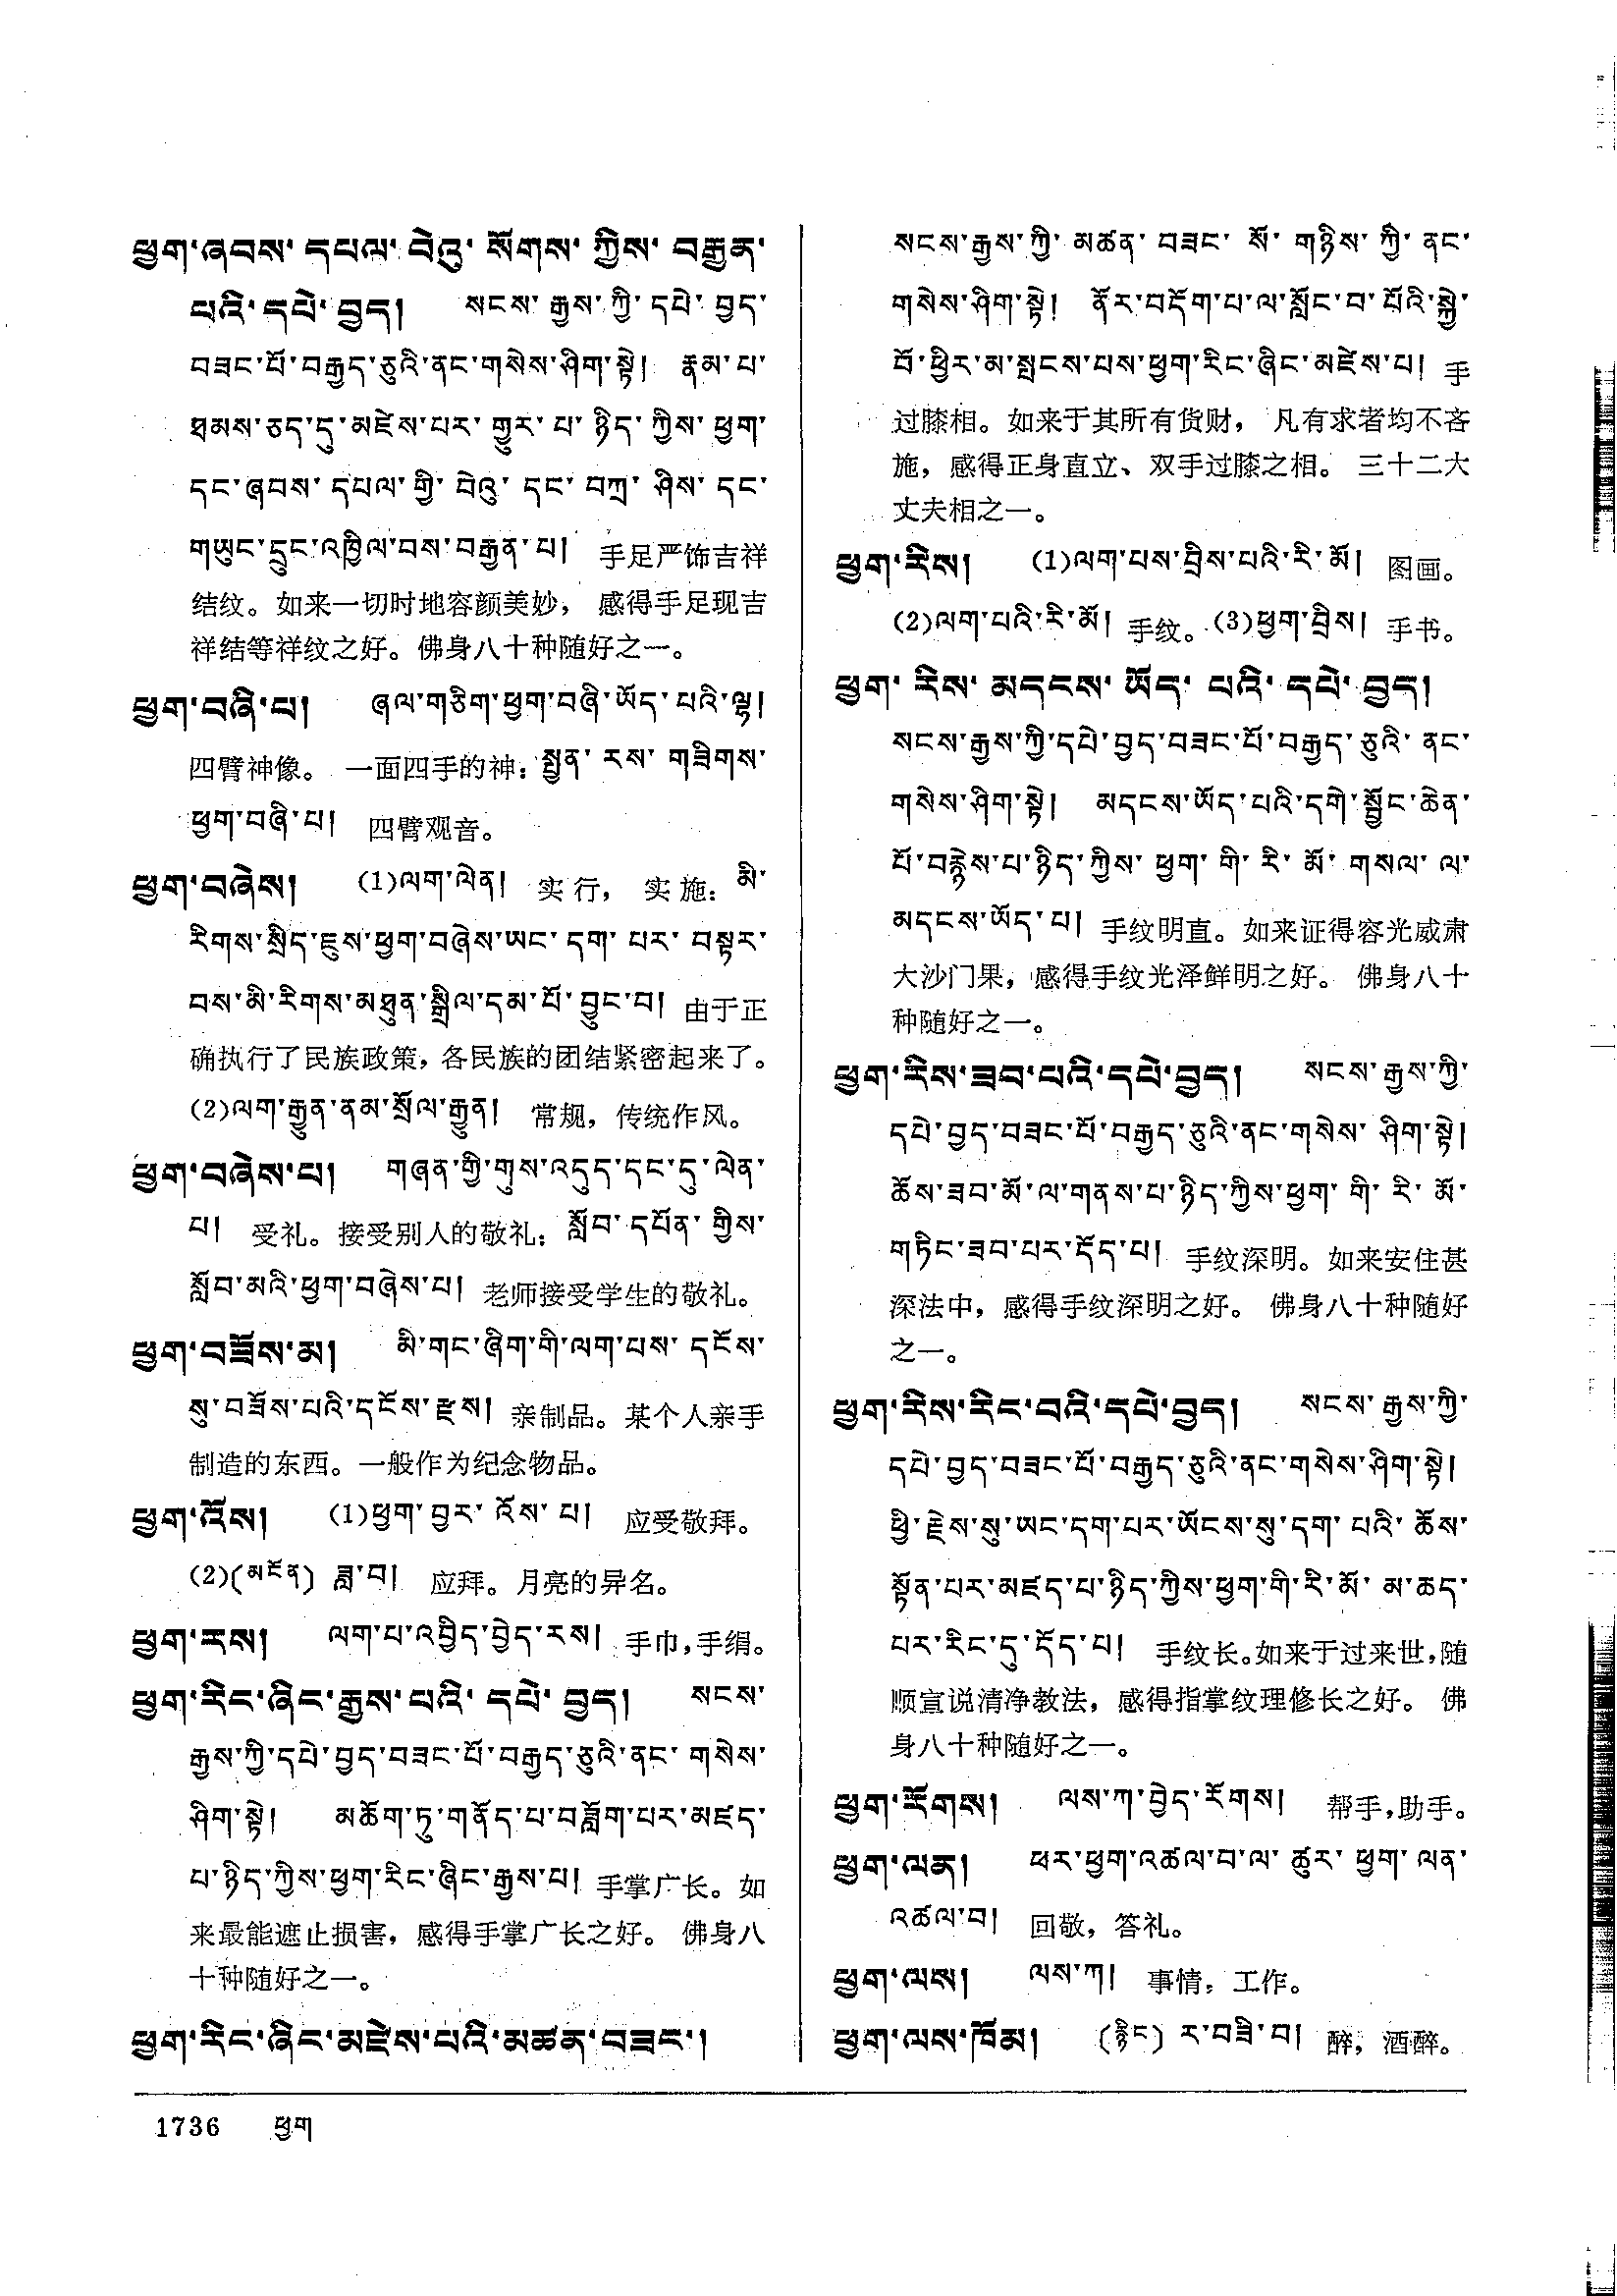 ཕྱག་ཞབས་དཔལ་བེའུ་སོགས་ཀྱིས་བརྒྱན་
པའི་དཔེ་བྱད། སངས་རྒྱས་ཀྱི་དཔེ་བྱད་
བཟང་པོ་བརྒྱད་ཅུའི་ནང་གསེས་ཤིག་སྟེ། རྣམ་པ་
ཐམས་ཅད་དུ་མཛེས་པར་གྱུར་པ་ཉིད་ཀྱིས་ཕྱག་
དང་ཞབས་དཔལ་གྱི་བེའུ་དང་བཀྲ་ཤིས་དང་
གཡུང་དྲུང་འཁྱིལ་བས་བརྒྱན་པ། 手足严饰吉祥
结纹。如来一切时地容颜美妙，感得手足现吉
祥结等祥纹之好。佛身八十种随好之一。
ཕྱག་བཞི་པ། ཞལ་གཅིག་ཕྱག་བཞི་ཡོད་པའི་ལྷ།
四臂神像。一面四手的神：སྤྱན་རས་གཟིགས་
ཕྱག་བཞི་པ། 四臂观音。
ཕྱག་བཞེས། (1)ལག་ལེན། 实行，实施：མི་
རིགས་སྲིད་ཇུས་ཕྱག་བཞེས་ཡང་དག་པར་བསྟར་
བས་མི་རིགས་མཐུན་སྒྲིལ་དམ་པོ་བྱུང་བ། 由于正
确执行了民族政策，各民族的团结紧密起来了。
(2)ལག་རྒྱུན་ནམ་སྲོལ་རྒྱུན། 常规，传统作风。
ཕྱག་བཞེས་པ། གཞན་གྱི་གུས་འདུད་དང་དུ་ལེན་
པ། 受礼。接受别人的敬礼：སློབ་དཔོན་གྱིས་
སློབ་མའི་ཕྱག་བཞེས་པ། 老师接受学生的敬礼。
ཕྱག་བཟོས་མ། མི་གང་ཞིག་གི་ལག་པས་དངོས་
སུ་བཟོས་པའི་དངོས་རྫས། 亲制品。某个人亲手
制造的东西。一般作为纪念物品。
ཕྱག་འོས། (1)ཕྱག་བྱར་འོས་པ། 应受敬拜。
(2)(མངོན) ཟླ་བ། 应拜。月亮的异名。
ཕྱག་རས། ལག་པ་འབྱིད་བྱེད་རས། 手巾，手绢。
ཕྱག་རིང་ཞིང་རྒྱས་པའི་དཔེ་བྱད། སངས་
རྒྱས་ཀྱི་དཔེ་བྱད་བཟང་པོ་བརྒྱད་ཅུའི་ནང་གསེས་
ཤིག་སྟེ། མཆོག་ཏུ་གནོད་པ་བཟློག་པར་མཛད་
པ་ཉིད་ཀྱིས་ཕྱག་རིང་ཞིང་རྒྱས་པ། 手掌广长。如
来最能遮止损害，感得手掌广长之好。佛身八
十种随好之一。
ཕྱག་རིང་ཞིང་མཛེས་པའི་མཚན་བཟང་།
སངས་རྒྱས་ཀྱི་མཚན་བཟང་སོ་གཉིས་ཀྱི་ནང་
གསེས་ཤིག་སྟེ། ནོར་བདོག་པ་ལ་སློང་བ་པོའི་སྐྱེ་
བོ་ཕྱིར་མ་སྤངས་པས་ཕྱག་རིང་ཞིང་མཛེས་པ། 手
过膝相。如来于其所有货财，凡有求者均不吝
施，感得正身直立、双手过膝之相。三十二大
丈夫相之一。
ཕྱག་རིས། (1)ལག་པས་བྲིས་པའི་རི་མོ། 图画。
(2)ལག་པའི་རི་མོ། 手纹。(3)ཕྱག་བྲིས། 手书。
ཕྱག་རིས་མདངས་ཡོད་པའི་དཔེ་བྱད།
སངས་རྒྱས་ཀྱི་དཔེ་བྱད་བཟང་པོ་བརྒྱད་ཅུའི་ནང་
གསེས་ཤིག་སྟེ། མདངས་ཡོད་པའི་དགེ་སྦྱོང་ཆེན་
པོ་བརྙེས་པ་ཉིད་ཀྱིས་ཕྱག་གི་རི་མོ་གསལ་ལ་
མདངས་ཡོད་པ། 手纹明直。如来证得容光威肃
大沙门果，感得手纹光泽鲜明之好。佛身八十
种随好之一。
ཕྱག་རིས་ཟབ་པའི་དཔེ་བྱད། སངས་རྒྱས་ཀྱི་
དཔེ་བྱད་བཟང་པོ་བརྒྱད་ཅུའི་ནང་གསེས་ཤིག་སྟེ།
ཆོས་ཟབ་མོ་ལ་གནས་པ་ཉིད་ཀྱིས་ཕྱག་གི་རི་མོ་
གཏིང་ཟབ་པར་དོད་པ། 手纹深明。如来安住甚
深法中，感得手纹深明之好。佛身八十种随好
之一。
ཕྱག་རིས་རིང་བའི་དཔེ་བྱད། སངས་རྒྱས་ཀྱི་
དཔེ་བྱད་བཟང་པོ་བརྒྱད་ཅུའི་ནང་གསེས་ཤིག་སྟེ།
ཕྱི་རྗེས་སུ་ཡང་དག་པར་ཡོངས་སུ་དག་པའི་ཆོས་
སྟོན་པར་མཛད་པ་ཉིད་ཀྱིས་ཕྱག་གི་རི་མོ་མ་ཆད་
པར་རིང་དུ་དོད་པ། 手纹长。如来于过来世，随
顺宣说清净教法，感得指掌纹理修长之好。佛
身八十种随好之一。
ཕྱག་རོགས། ལས་ཀ་བྱེད་རོགས། 帮手，助手。
ཕྱག་ལན། ཕར་ཕྱག་འཚལ་བ་ལ་ཚུར་ཕྱག་ལན་
འཚལ་བ། 回敬，答礼。
ཕྱག་ལས། ལས་ཀ། 事情，工作。
ཕྱག་ལས་ཁོམ། (རྙིང) ར་བཟི་བ། 醉，酒醉。
1736 ཕྱག